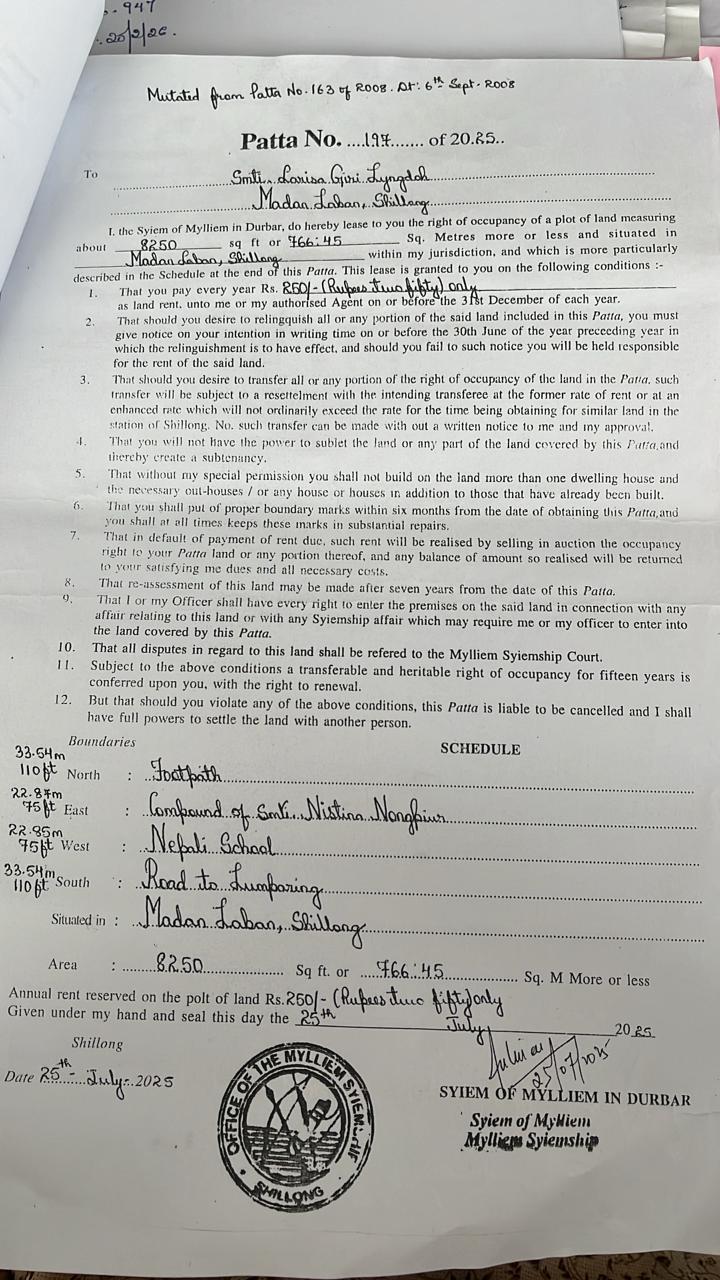 . 947
. 20/2/26.
Mutated from Patta No. 163 of 2008. Dt: 6th Sept. 2008
Patta No. ....197....... of 2025..
To Smti. Larisa Giri Lyngdoh
Madan Laban, Shillong
I, the Syiem of Mylliem in Durbar, do hereby lease to you the right of occupancy of a plot of land measuring
about 8250 sq ft or 766:45 Sq. Metres more or less and situated in
Madan Laban, Shillong within my jurisdiction, and which is more particularly
described in the Schedule at the end of this Patta. This lease is granted to you on the following conditions :-
1. That you pay every year Rs. 250/- (Rupees two fifty) only
as land rent, unto me or my authorised Agent on or before the 31st December of each year.
2. That should you desire to relingquish all or any portion of the said land included in this Patta, you must
give notice on your intention in writing time on or before the 30th June of the year preceeding year in
which the relinguishment is to have effect, and should you fail to such notice you will be held responsible
for the rent of the said land.
3. That should you desire to transfer all or any portion of the right of occupancy of the land in the Patta, such
transfer will be subject to a resettelment with the intending transferee at the former rate of rent or at an
enhanced rate which will not ordinarily exceed the rate for the time being obtaining for similar land in the
station of Shillong. No. such transfer can be made with out a written notice to me and my approval.
4. That you will not have the power to sublet the land or any part of the land covered by this Patta,and
thereby create a subtenancy.
5. That without my special permission you shall not build on the land more than one dwelling house and
the necessary out-houses / or any house or houses in addition to those that have already been built.
6. That you shall put of proper boundary marks within six months from the date of obtaining this Patta,and
you shall at all times keeps these marks in substantial repairs.
7. That in default of payment of rent due, such rent will be realised by selling in auction the occupancy
right to your Patta land or any portion thereof, and any balance of amount so realised will be returned
to your satisfying me dues and all necessary costs.
8. That re-assessment of this land may be made after seven years from the date of this Patta.
9. That I or my Officer shall have every right to enter the premises on the said land in connection with any
affair relating to this land or with any Syiemship affair which may require me or my officer to enter into
the land covered by this Patta.
10. That all disputes in regard to this land shall be refered to the Mylliem Syiemship Court.
11. Subject to the above conditions a transferable and heritable right of occupancy for fifteen years is
conferred upon you, with the right to renewal.
12. But that should you violate any of the above conditions, this Patta is liable to be cancelled and I shall
have full powers to settle the land with another person.
Boundaries
SCHEDULE
33.54m
110ft North : Footpath
22.87m
75ft East : Compound of Smti. Nistina Nongpiur
22.85m
75ft West : Nepali School
33.54m
110ft South : Road to Lumparing
Situated in : Madan Laban, Shillong
Area : 8250 Sq ft. or 766:45 Sq. M More or less
Annual rent reserved on the polt of land Rs. 250/- (Rupees two fifty) only
Given under my hand and seal this day the 25th July 2025
Shillong
Date 25th - July - 2025
25/07/2025
SYIEM OF MYLLIEM IN DURBAR
Syiem of Mylliem
Mylliem Syiemship
OFFICE OF THE MYLLIEM SYIEMSHIP
SHILLONG